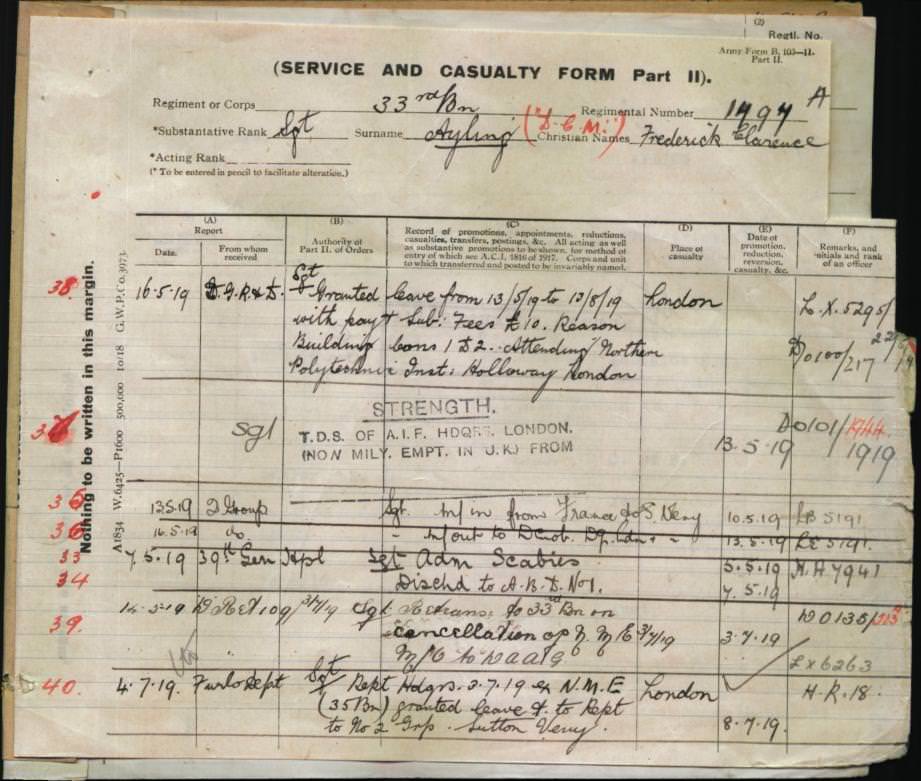 (2)
Regtl. No.
Army Form B. 103—II.
Part II.
(SERVICE AND CASUALTY FORM Part II).
Regiment or Corps 33rd Bn Regimental Number 1797 A
*Substantative Rank Sgt Surname Ayling ("D.C.M.") Christian Names Frederick Clarence
*Acting Rank
(* To be entered in pencil to facilitate alteration.)
Nothing to be written in this margin.
A1834 W.6425—P1600 500,000 10/18 G.W.P.Co.3073.
(A) (B) (C) (D) (E) (F)
Report
Date. From whom received
Authority of Part II. of Orders
Record of promotions, appointments, reductions,
casualties, transfers, postings, &c. All acting as well
as substantive promotions to be shown, for method of
entry of which see A.C.I. 1816 of 1917. Corps and unit
to which transferred and posted to be invariably named.
Place of casualty
Date of promotion, reduction, reversion, casualty, &c.
Remarks, and initials and rank of an officer
Sgt
38. 16.5.19 D.G.R.&D. Granted leave from 13/5/19 to 13/8/19 London L.X.5295/
with pay & Sub: Fees £10. Reason
Building cons 1 & 2. Attending Northern D0100/217
Polytechnic Inst: Holloway London
STRENGTH.
Sgt T.D.S. OF A.I.F. HDQRS. LONDON. D0101/1944
(NOW MILY. EMPT. IN U.K.) FROM 13.5.19 1919
35 13.5.19 D Group Sgt. m/in from France 10.5.19 LB 5191
36 16.5.19 do - m/out to Dcob. 13.5.19 LE 5191.
33 7.5.19 39th Gen Hpl Sgt Adm Scabies 5.5.19 H.H.7941
34 Dischd to A.B.D. No1. 7.5.19
39. Sgt Retrans: to 33rd Bn on D0135/
cancellation of N.M.E 3/7/19 3.7.19
Lx6263
40. 4.7.19. Furlo Rept Sgt Rept Hdqrs. 3.7.19 ex N.M.E London H.R.18.
(35Bn) granted leave & to Rept
to No 2 Grp. Sutton Veny. 8.7.19.